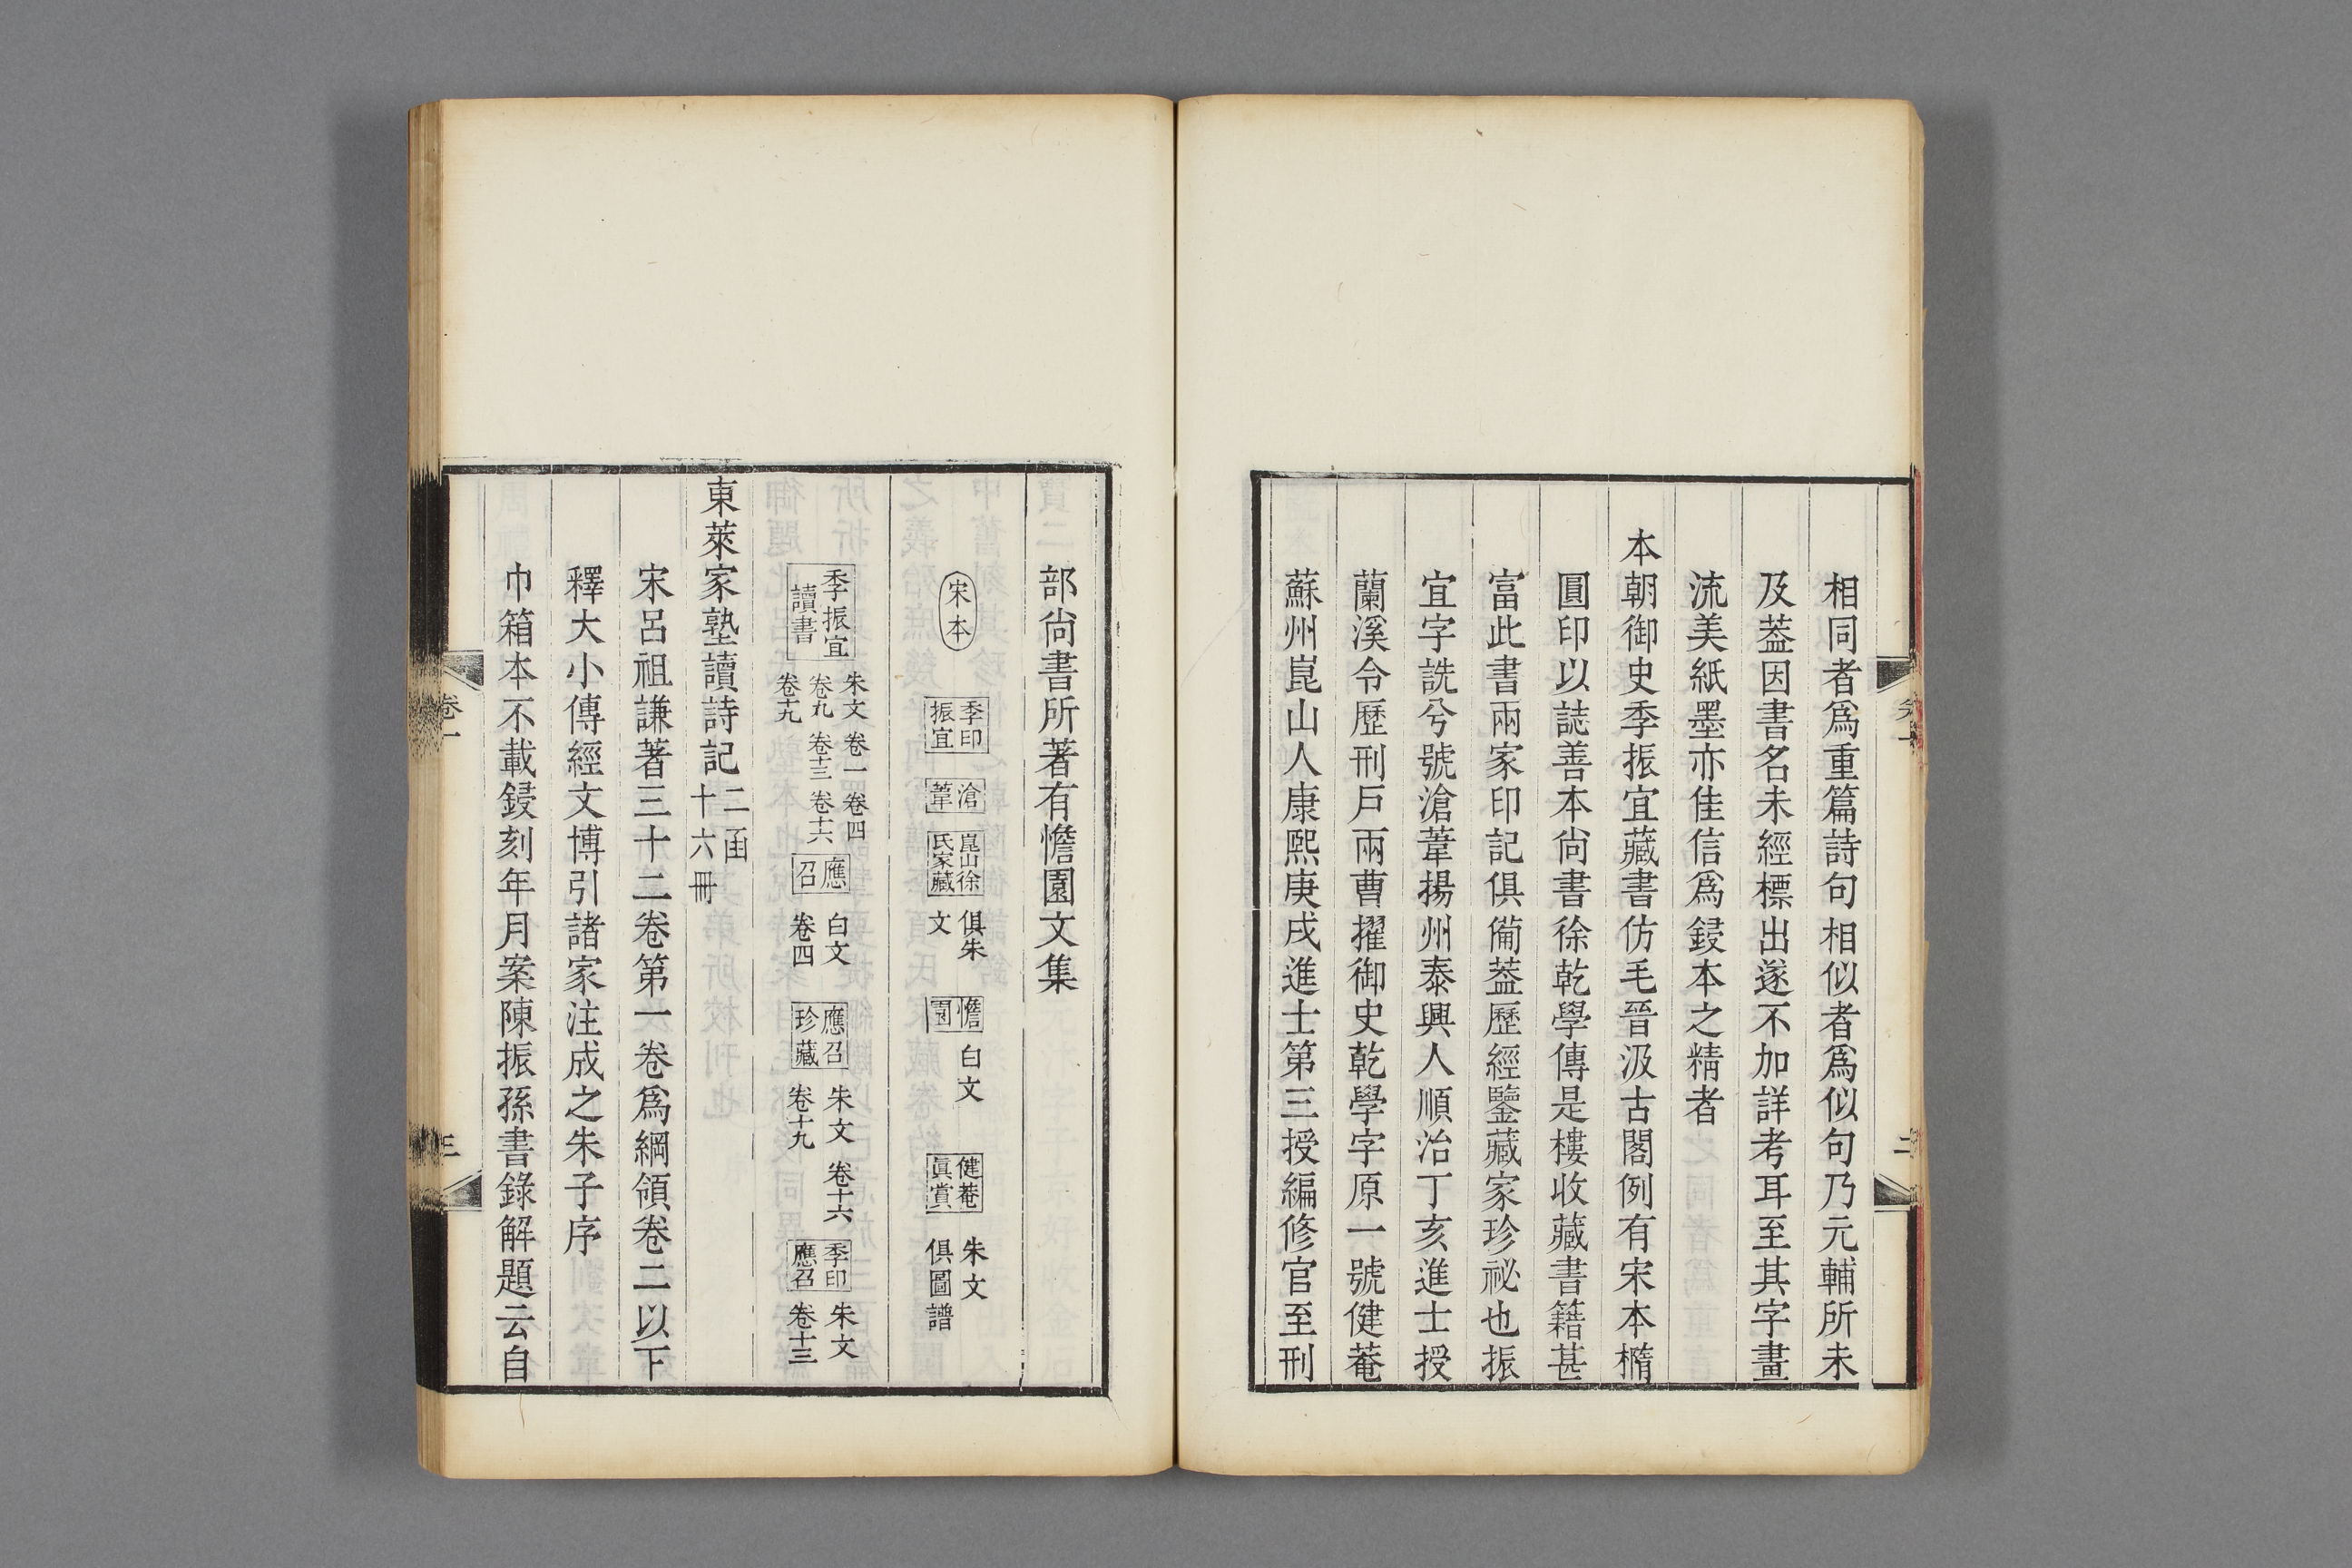 相同者爲重篇詩句相似者爲似句乃元輔所未
及葢因書名未經標出遂不加詳考耳至其字畫
流美紙墨亦佳信爲鋟本之精者
本朝御史季振宜藏書仿毛晉汲古閣例有宋本橢
圓印以誌善本尙書徐乾學傳是樓收藏書籍甚
富此書兩家印記俱僃葢歷經鑒藏家珍祕也振
宜字詵兮號滄葦揚州泰興人順治丁亥進士授
蘭溪令歷刑戶兩曹擢御史乾學字原一號健菴
蘇州崑山人康熙庚戌進士第三授編修官至刑
部尙書所著有憺園文集
宋本
季印振宜
滄葦
崑山徐氏家藏
俱朱文
憺園
白文
健菴眞賞
朱文
俱圖譜
季振宜讀書
朱文 卷一 卷四
卷九 卷十三 卷十六
卷十九
應召
白文
卷四
應召珍藏
朱文 卷十六
卷十九
季印應召
朱文
卷十三
東萊家塾讀詩記 二函
十六冊
宋呂祖謙著三十二卷第一卷爲綱領卷二以下
釋大小傳經文博引諸家注成之朱子序
巾箱本不載鋟刻年月案陳振孫書錄解題云自
卷一
三
二